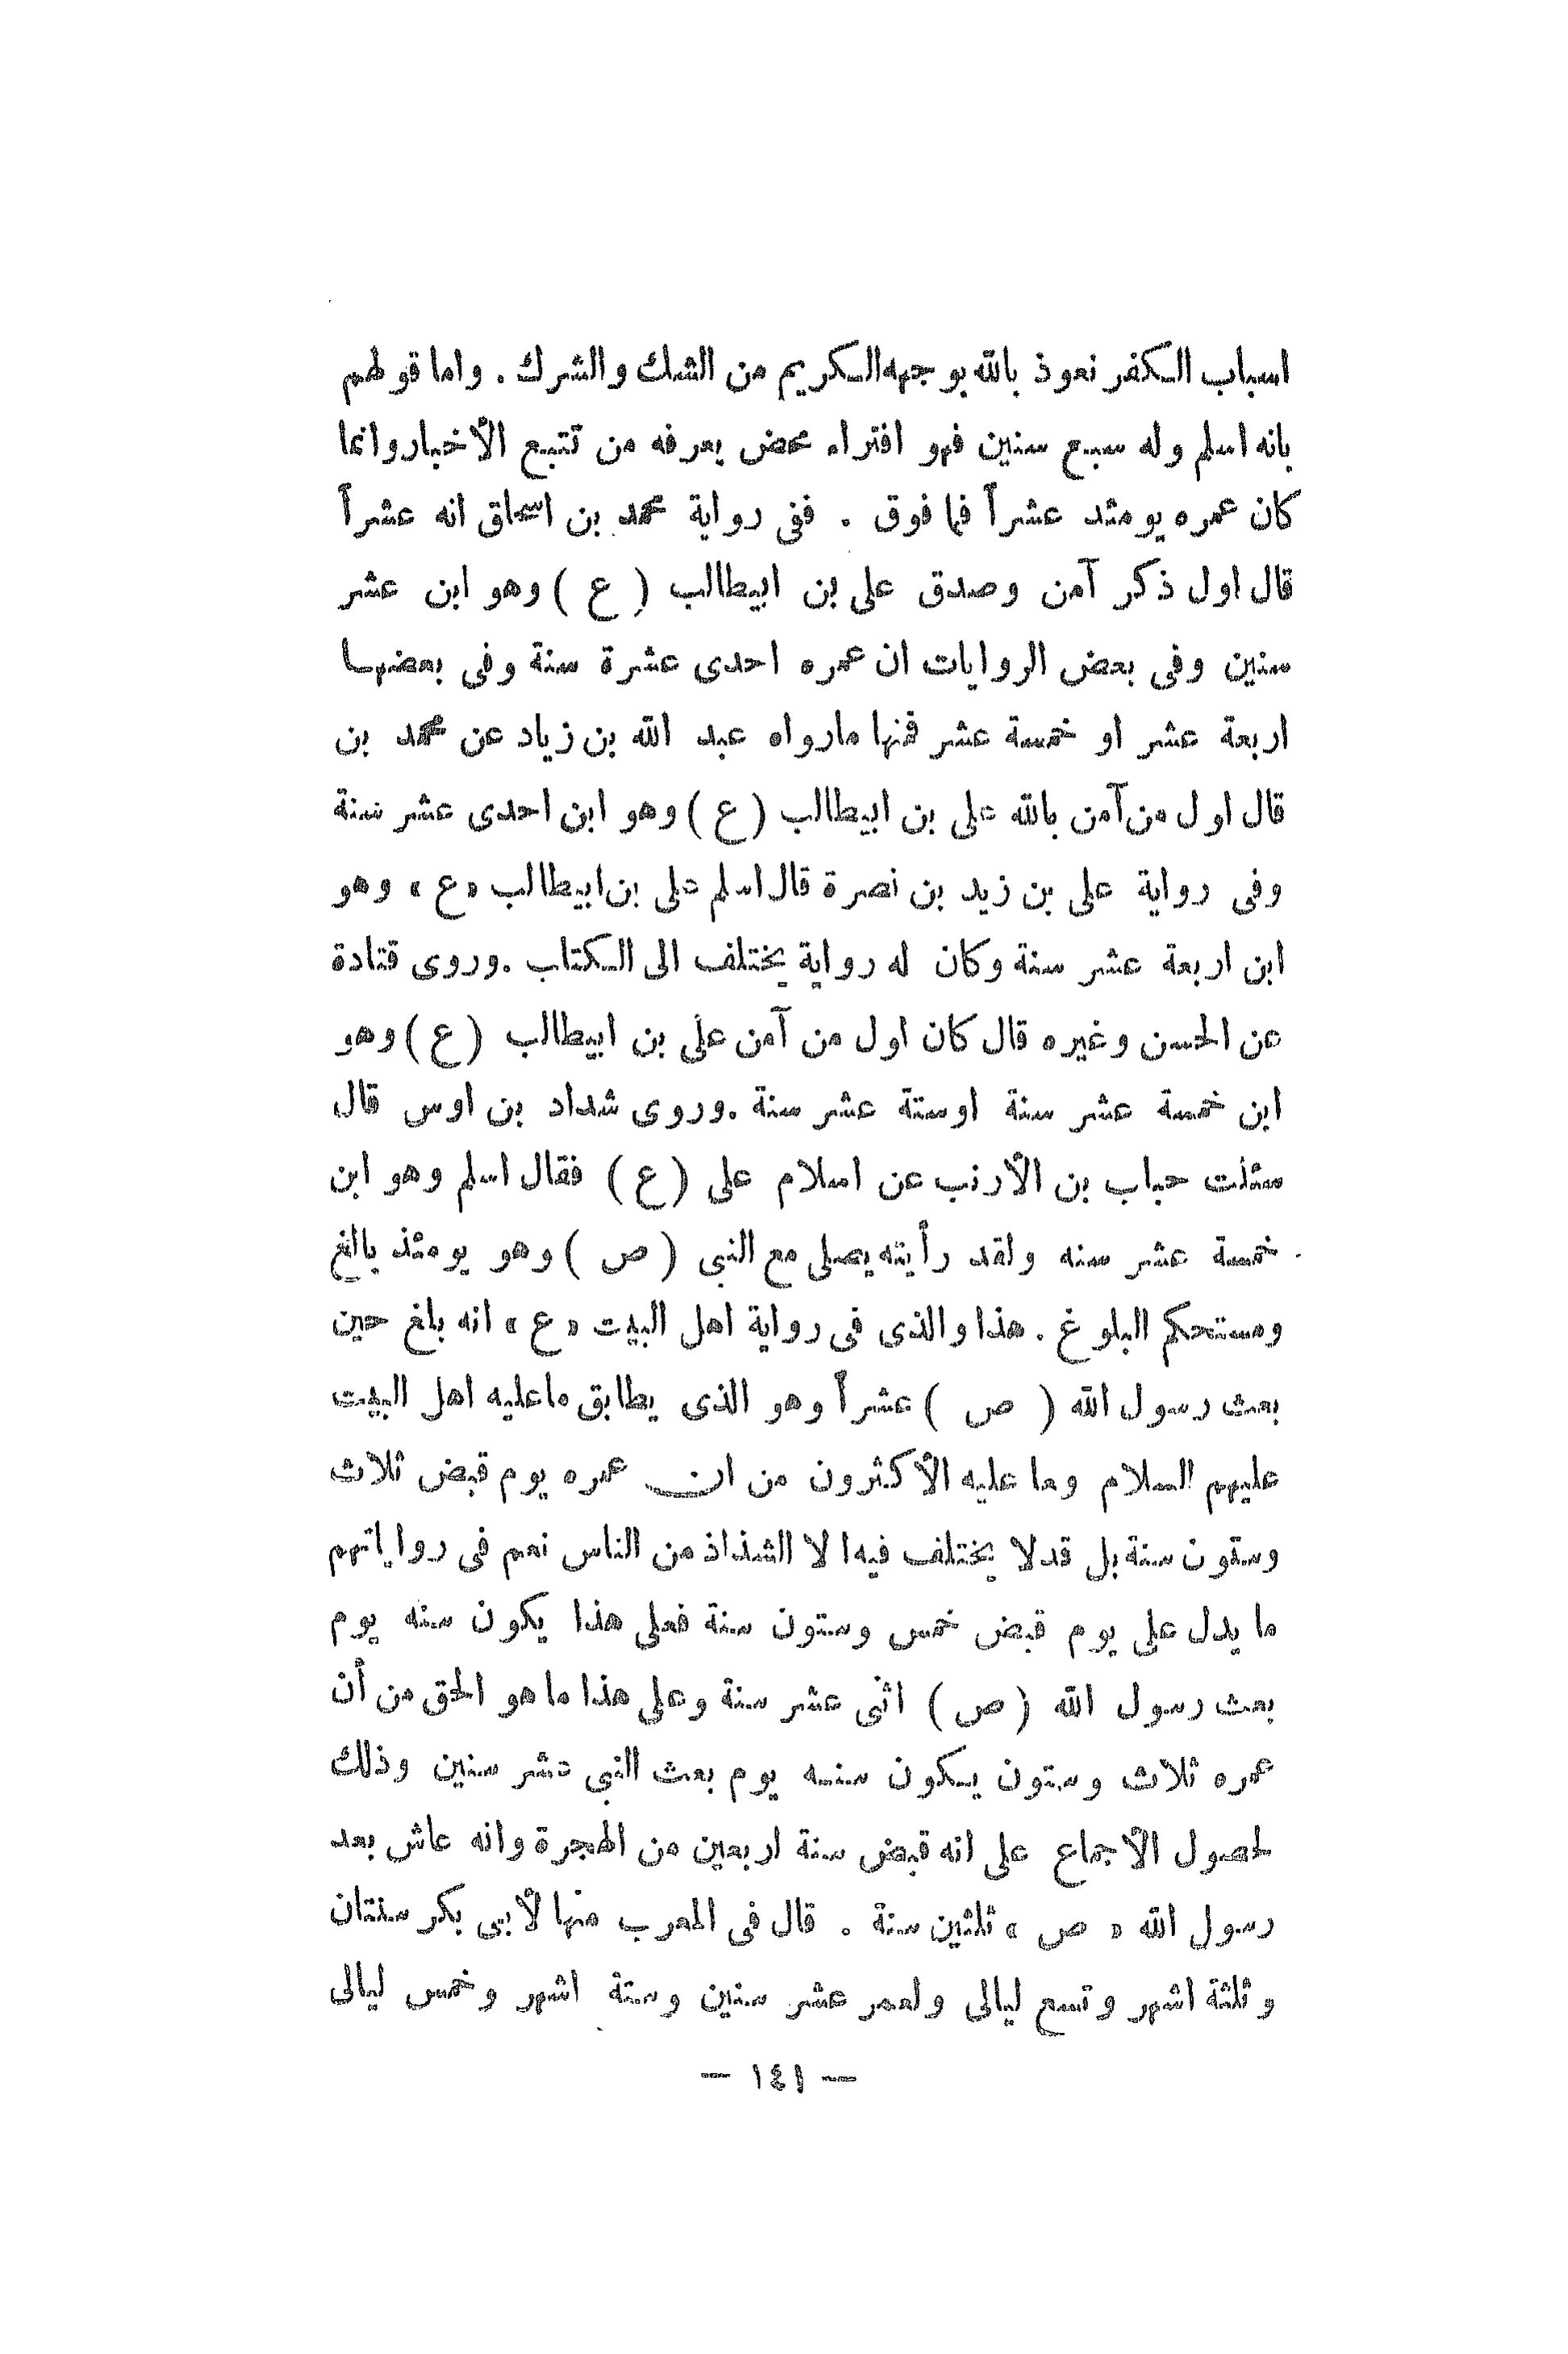 اسباب الكفر نعوذ بالله بوجهه الكريم من الشك والشرك . واما قولهم
بانه اسلم وله سبع سنين فهو افتراء محض يعرفه من تتبع الأخبار وانما
كان عمره يومئد عشراً فما فوق . ففى رواية محمد بن اسحاق انه عشراً
قال اول ذكر آمن وصدق على بن ابيطالب ( ع ) وهو ابن عشر
سنين وفى بعض الروايات ان عمره احدى عشرة سنة وفى بعضها
اربعة عشر او خمسة عشر فمنها مارواه عبد الله بن زياد عن محمد بن
قال اول من آمن بالله على بن ابيطالب ( ع ) وهو ابن احدى عشر سنة
وفى رواية على بن زيد بن نصرة قال اسلم على بن ابيطالب « ع » وهو
ابن اربعة عشر سنة وكان له رواية يختلف الى الكتاب . وروى قتادة
عن الحسن وغيره قال كان اول من آمن على بن ابيطالب ( ع ) وهو
ابن خمسة عشر سنة اوستة عشر سنة . وروى شداد بن اوس قال
سئلت حباب بن الأرنب عن اسلام على ( ع ) فقال اسلم وهو ابن
خمسة عشر سنه ولقد رأيته يصلى مع النبى ( ص ) وهو يومئذ بالغ
ومستحكم البلوغ . هذا والذى فى رواية اهل البيت « ع » انه بلغ حين
بعث رسول الله ( ص ) عشراً وهو الذى يطابق ماعليه اهل البيت
عليهم السلام وما عليه الأكثرون من ان عمره يوم قبض ثلاث
وستون سنة بل قدلا يختلف فيه ا لا الشذاذ من الناس نعم فى رواياتهم
ما يدل على يوم قبض خمس وستون سنة فعلى هذا يكون سنه يوم
بعث رسول الله ( ص ) اثنى عشر سنة وعلى هذا ما هو الحق من أن
عمره ثلاث وستون يكون سنه يوم بعث النبى عشر سنين وذلك
لحصول الأجماع على انه قبض سنة اربعين من الهجرة وانه عاش بعد
رسول الله « ص » ثلثين سنة . قال فى المعرب منها لأبى بكر سنتان
وثلثة اشهر وتسع ليالى ولعمر عشر سنين وستة اشهر وخمس ليالى
— ١٤١ —